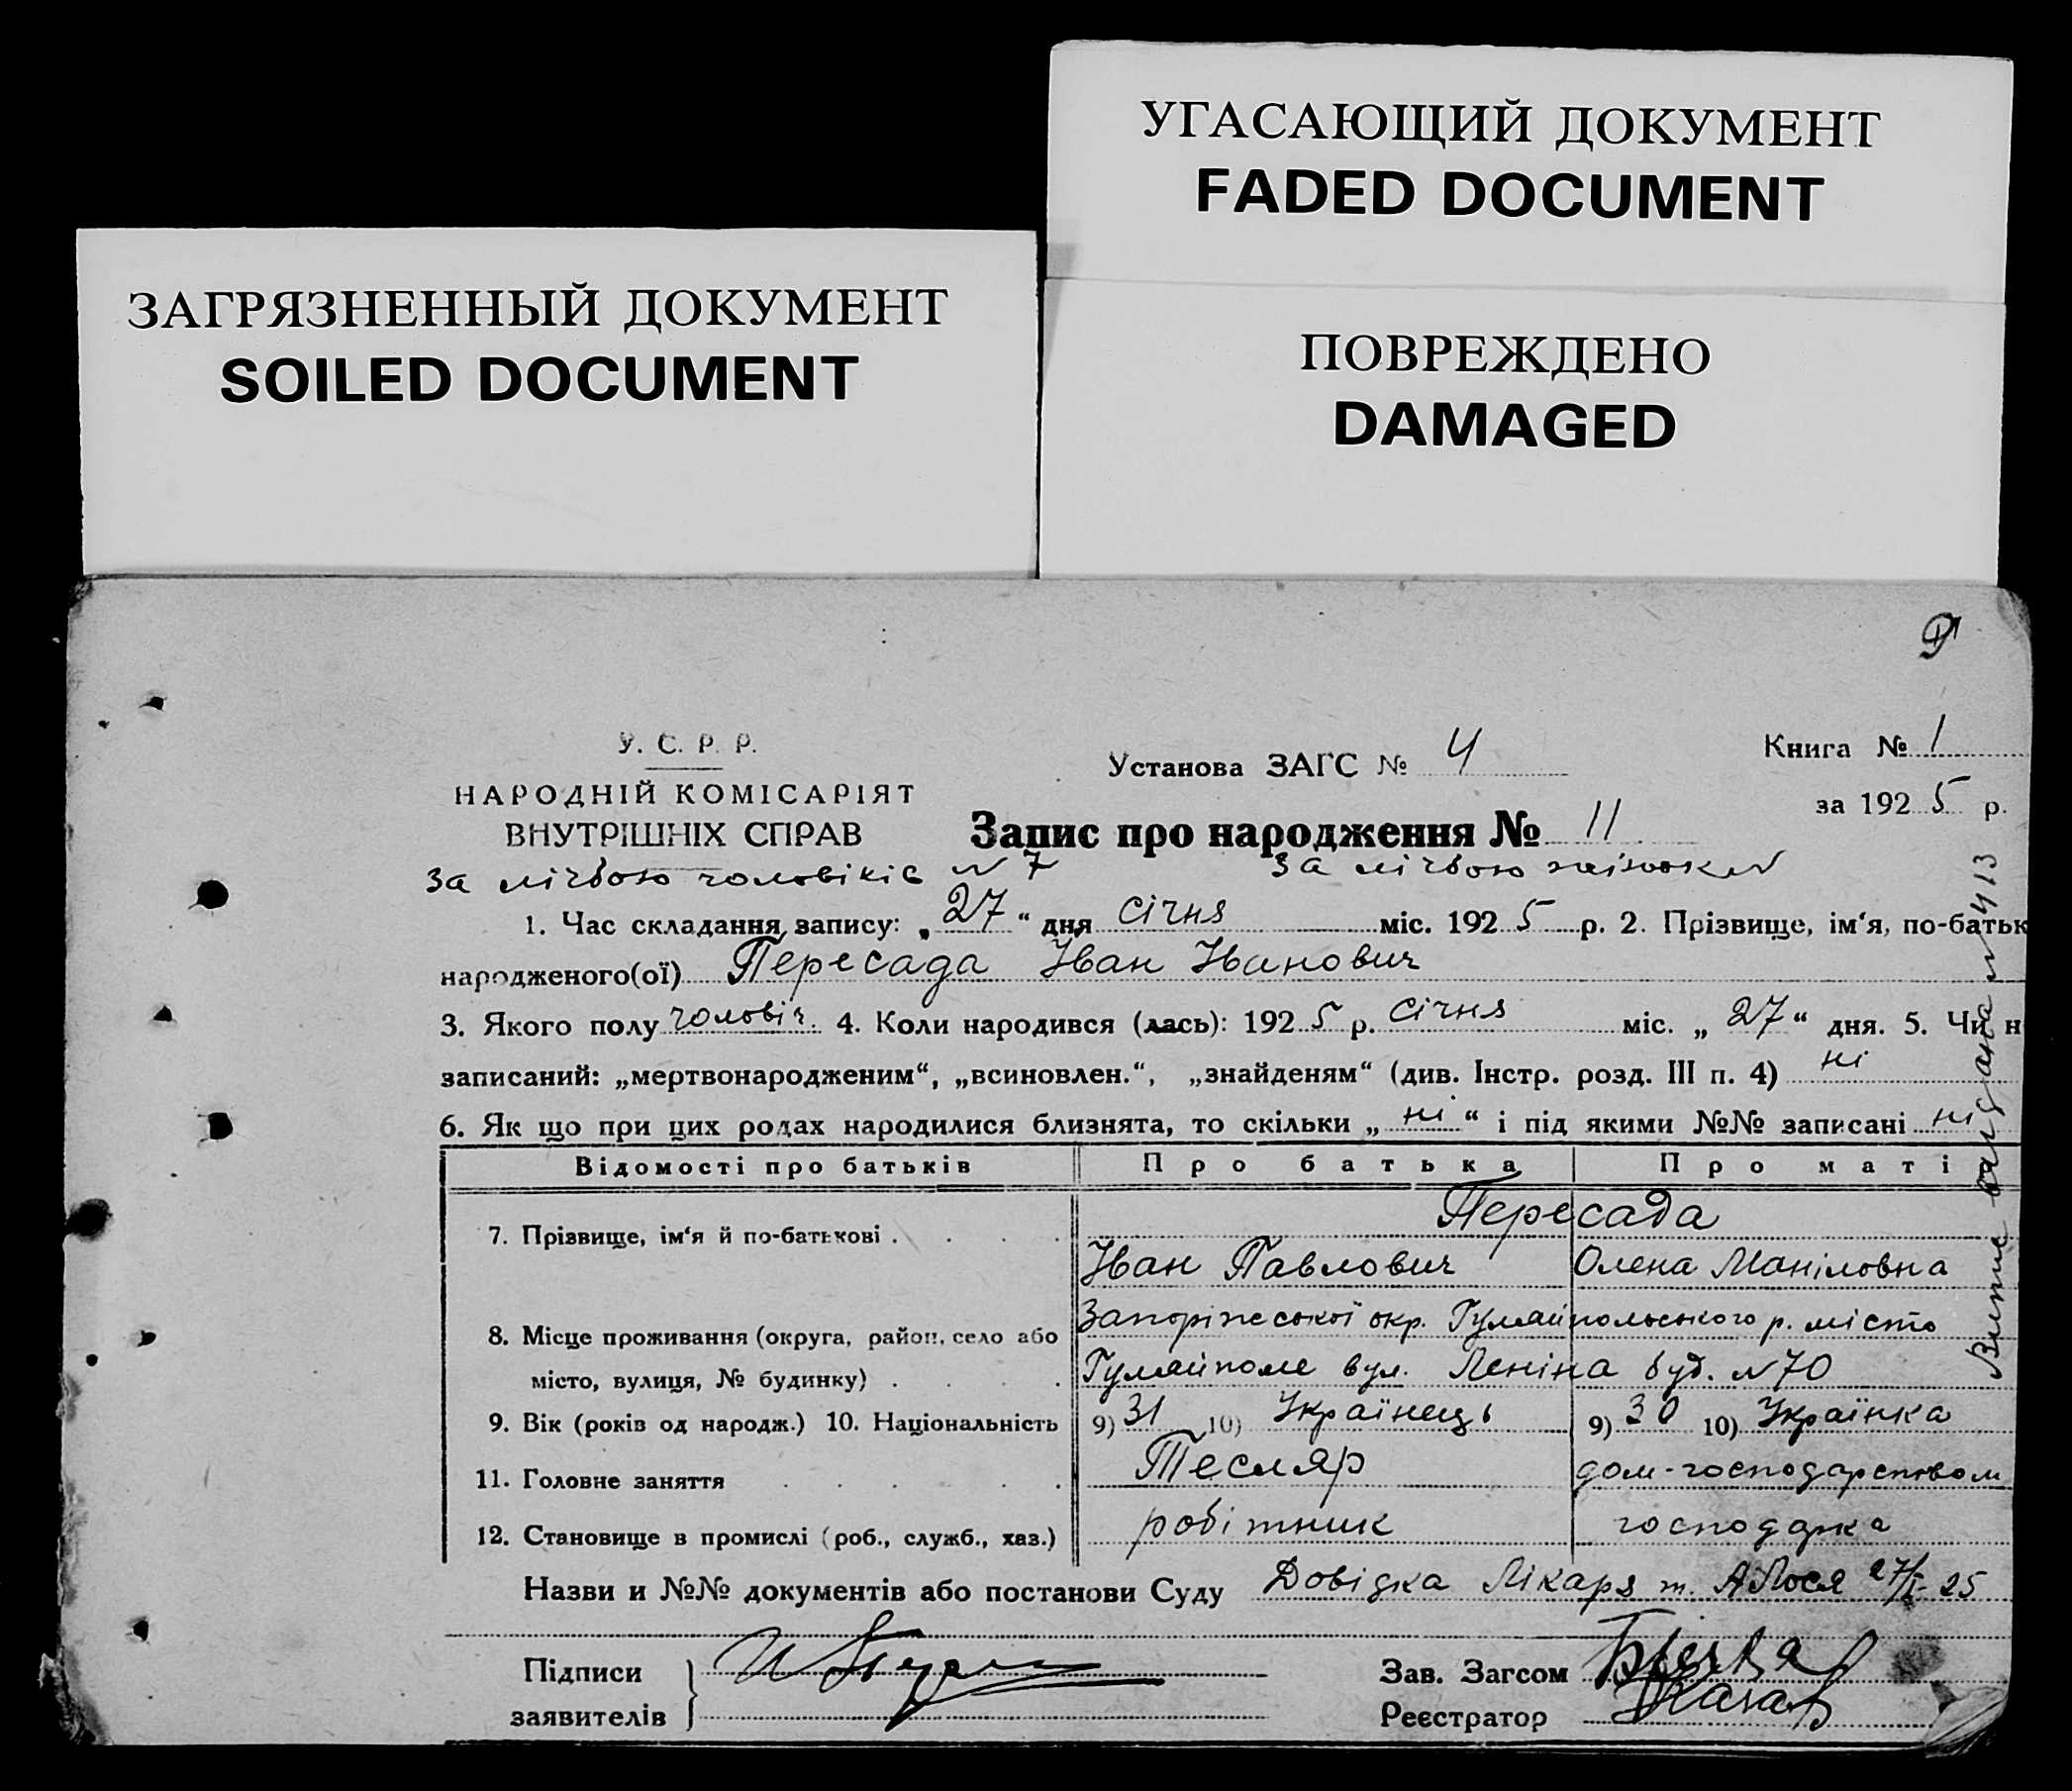 УГАСАЮЩИЙ ДОКУМЕНТ
FADED DOCUMENT
ЗАГРЯЗНЕННЫЙ ДОКУМЕНТ
SOILED DOCUMENT
ПОВРЕЖДЕНО
DAMAGED
У. С. Р. Р.
НАРОДНІЙ КОМІСАРІЯТ
ВНУТРІШНІХ СПРАВ
Установа ЗАГС № 4
Книга № 1
за 1925 р.
Запис про народження № 11
За лічбою чоловіків № 7 За лічбою жінок №
1. Час складання запису: „27“ дня січня міс. 1925 р. 2. Прізвище, ім‘я, по-батьк
народженого(ої) Пересада Іван Іванович
3. Якого полу чоловіч. 4. Коли народився (лась): 1925 р. січня міс. „27“ дня. 5. Чи н
записаний: „мертвонародженим“, „всиновлен.“, „знайденям“ (див. Інстр. розд. III п. 4) ні
6. Як що при цих родах народилися близнята, то скільки „ні“ і під якими №№ записані ні
Відомості про батьків Про батька Про маті
7. Прізвище, ім‘я й по-батькові . . . . Пересада
Іван Павлович Олена Маніловна
8. Місце проживання (округа, район, село або Запоріжської окр. Гуляйпольського р. місто
місто, вулиця, № будинку) . . . . Гуляйполе вул. Леніна буд. №70
9. Вік (років од народж.) 10. Національність 9) 31 10) Українець 9) 30 10) Українка
11. Головне заняття . . . . . Тесляр дом-господарством
12. Становище в промислі (роб., служб., хаз.) робітник господарка
Назви и №№ документів або постанови Суду Довідка Лікаря т. 27/I-25
Підписи
заявителів
Зав. Загсом
Реєстратор
Витяг видана №413